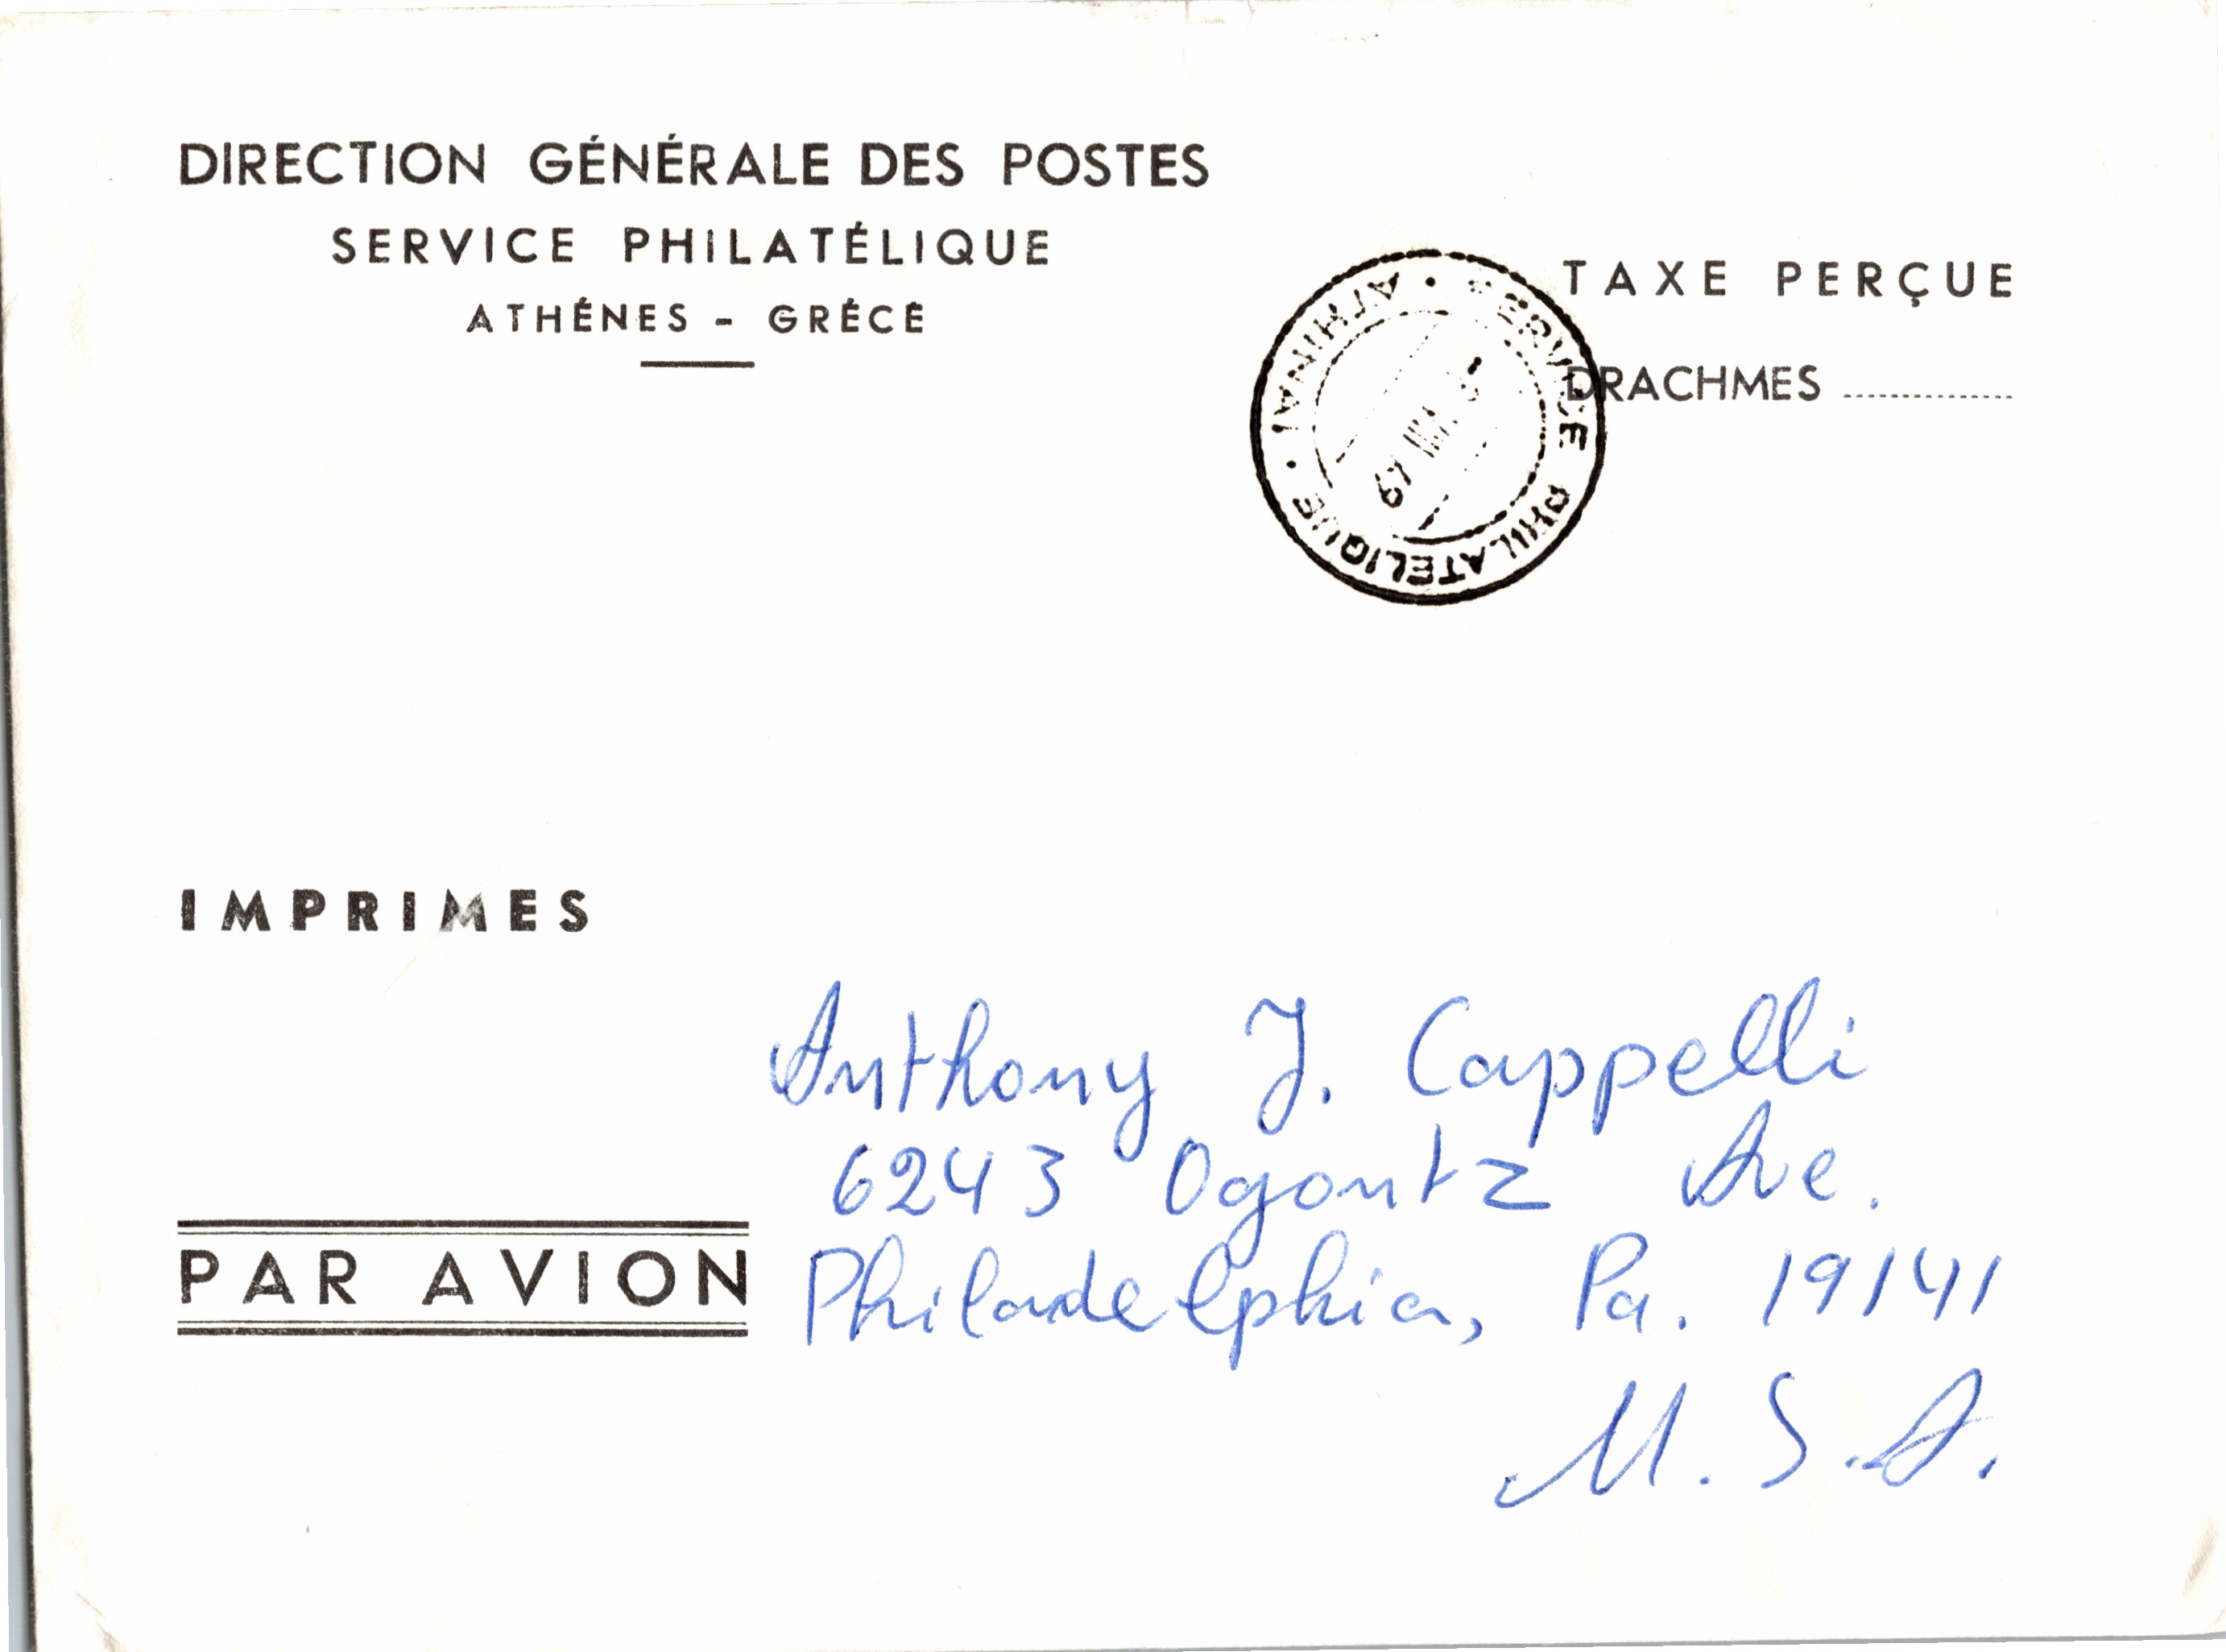 DIRECTION GÉNÉRALE DES POSTES
SERVICE PHILATÉLIQUE
ATHÉNES - GRÉCE
TAXE PERÇUE
DRACHMES ..............
SERVICE PHILATELIQUE • ATHINAI •
IMPRIMES
PAR AVION
Anthony J. Cappelli
6243 Ogontz Ave.
Philadelphia, Pa. 19141
U.S.A.